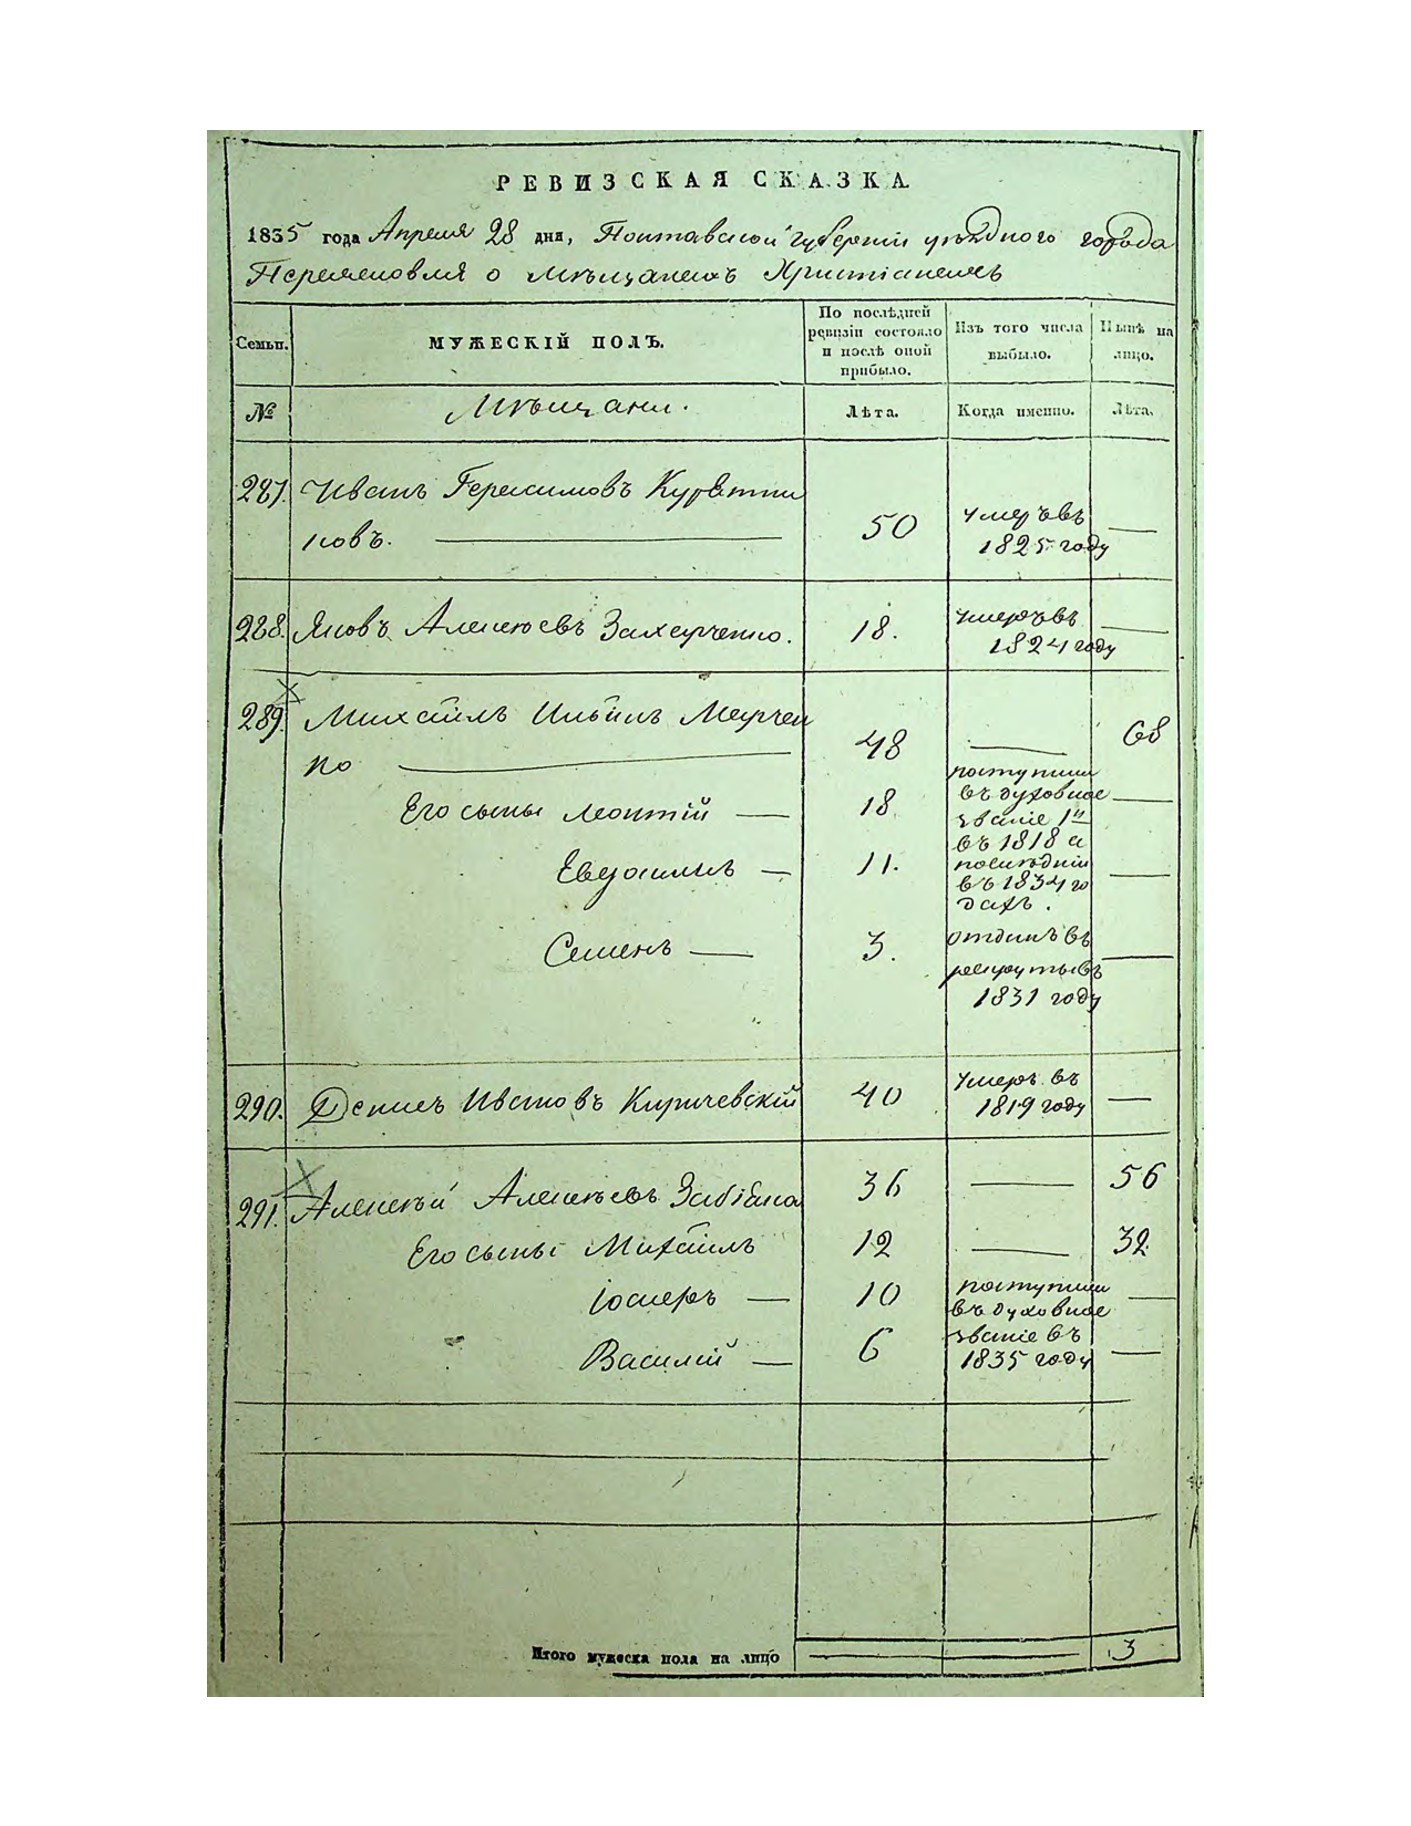 РЕВИЗСКАЯ СКАЗКА
1835 года Апреля 28 дня, Полтавской губернии уѣздного города
Переяславля о мѣщанахъ Христіанехъ
Семьи.
МУЖЕСКІЙ ПОЛЪ.
По послѣдней
ревизіи состояло
и послѣ оной
прибыло.
Изъ того числа
выбыло.
Нынѣ на
лицо.
№
Мѣщани.
Лѣта.
Когда именно.
Лѣта.
287. Иванъ Герасимовъ
новъ.
50
умеръ въ
1825 году
288. Яковъ Алексѣевъ Захарченко.
18.
умеръ въ
1824 году
289. Михаилъ Ильинъ Марчен
ко
48
68
Его сыны Леонтій
18
поступили
въ духовное
званіе 1й
въ 1818 а
послѣдній
въ 1834 го
дахъ.
11.
Семенъ
3.
отданъ въ
рекруты въ
1831 году
290. Денисъ Ивановъ Киричевскій
40
умеръ въ
1819 году
291. Алексѣй Алексѣевъ Забіяка
36
56
Его сыны Михаилъ
12
32
10
поступили
въ духовное
Василій
6
званіе въ
1835 году
Итого мужеска пола на лицо
3